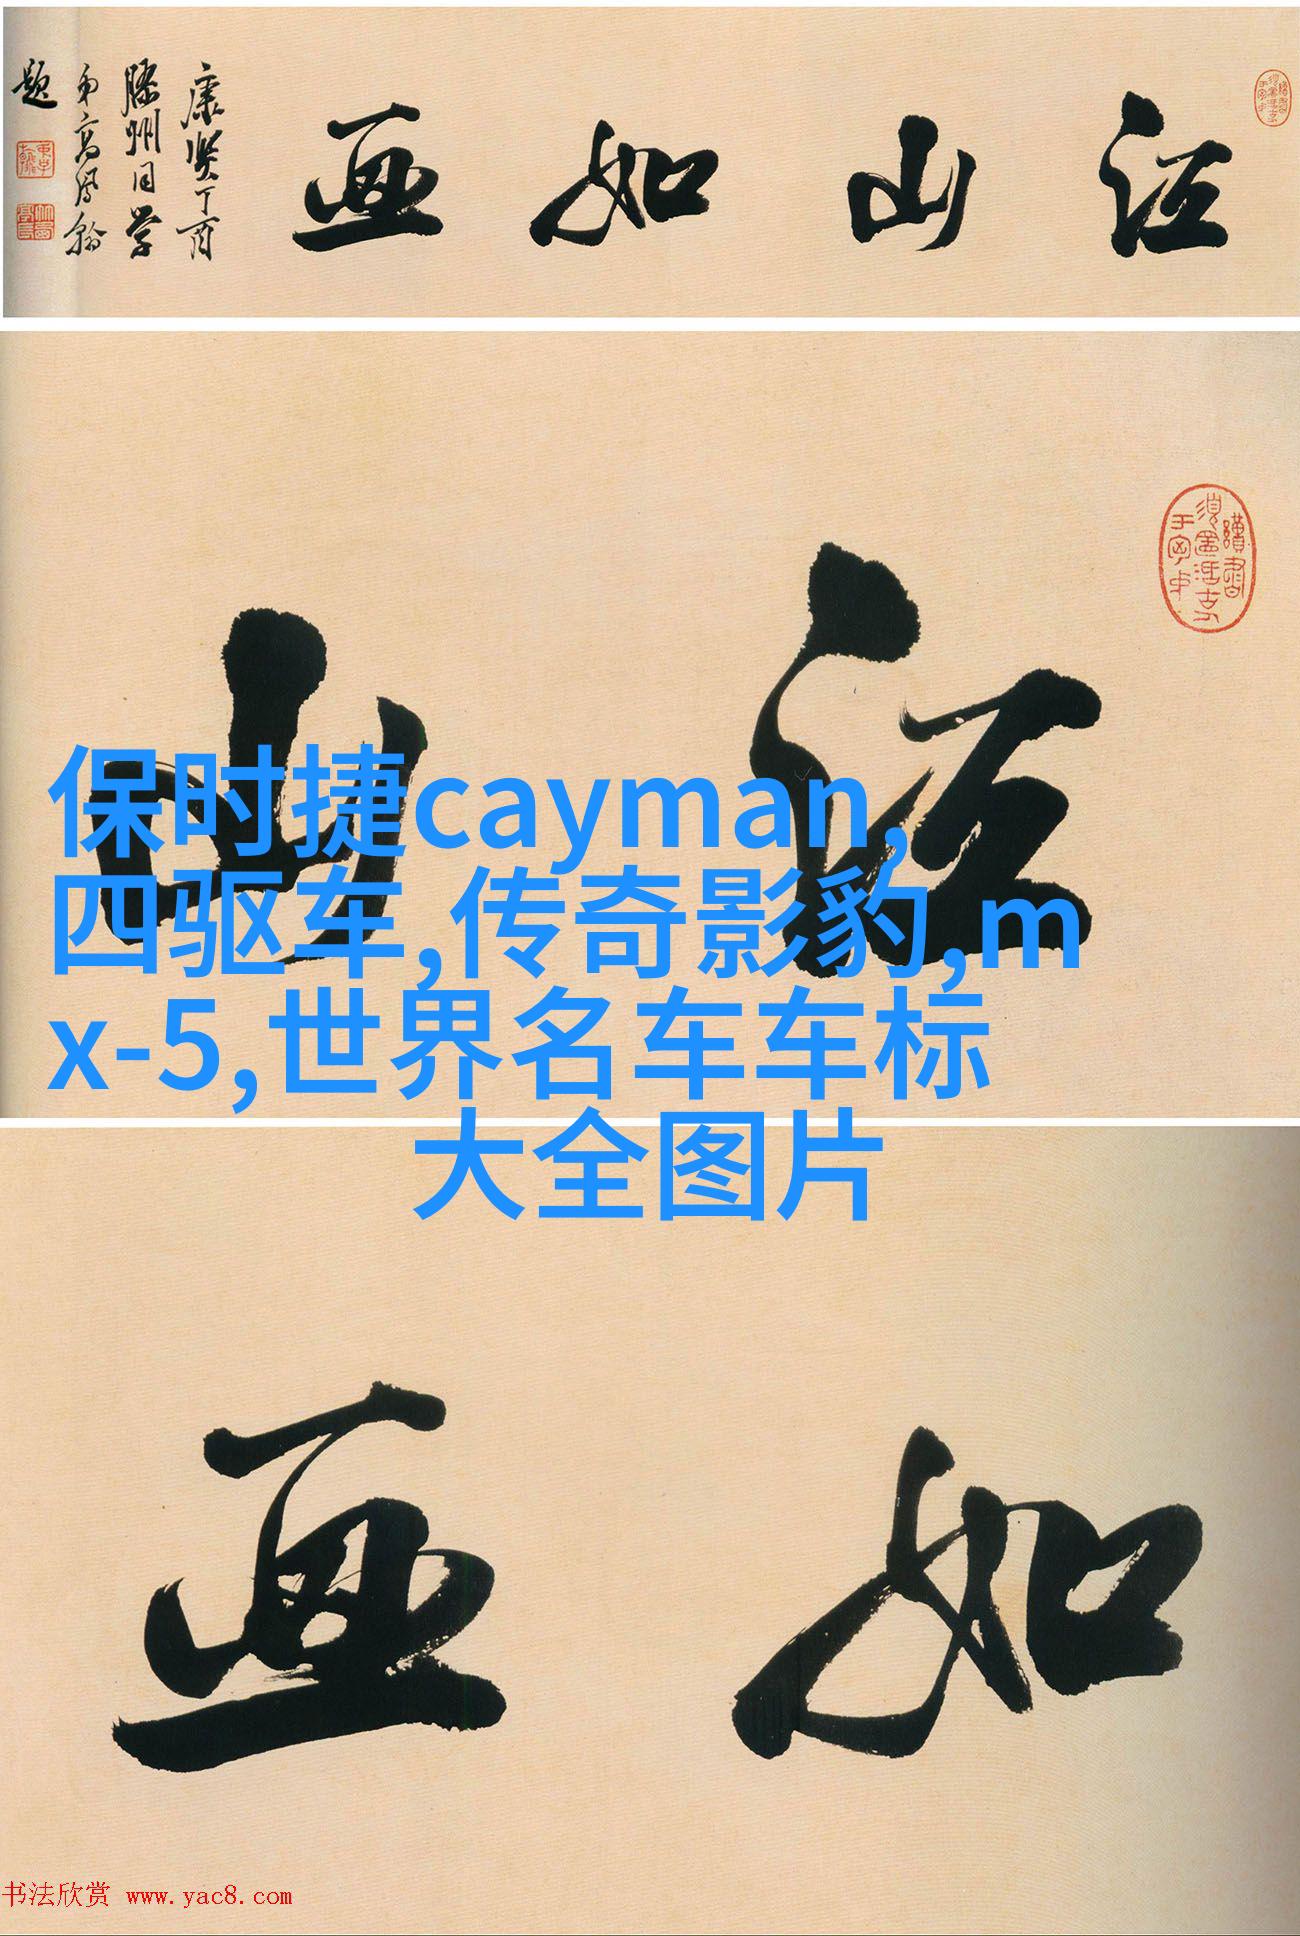 江山如画
康贤丁酉
滕州同学
弟高凤翰
题
江山
保时捷cayman,
四驱车,传奇影豹,m
x-5,世界名车车标
大全图片
如画
书法欣赏 www.yac8.com